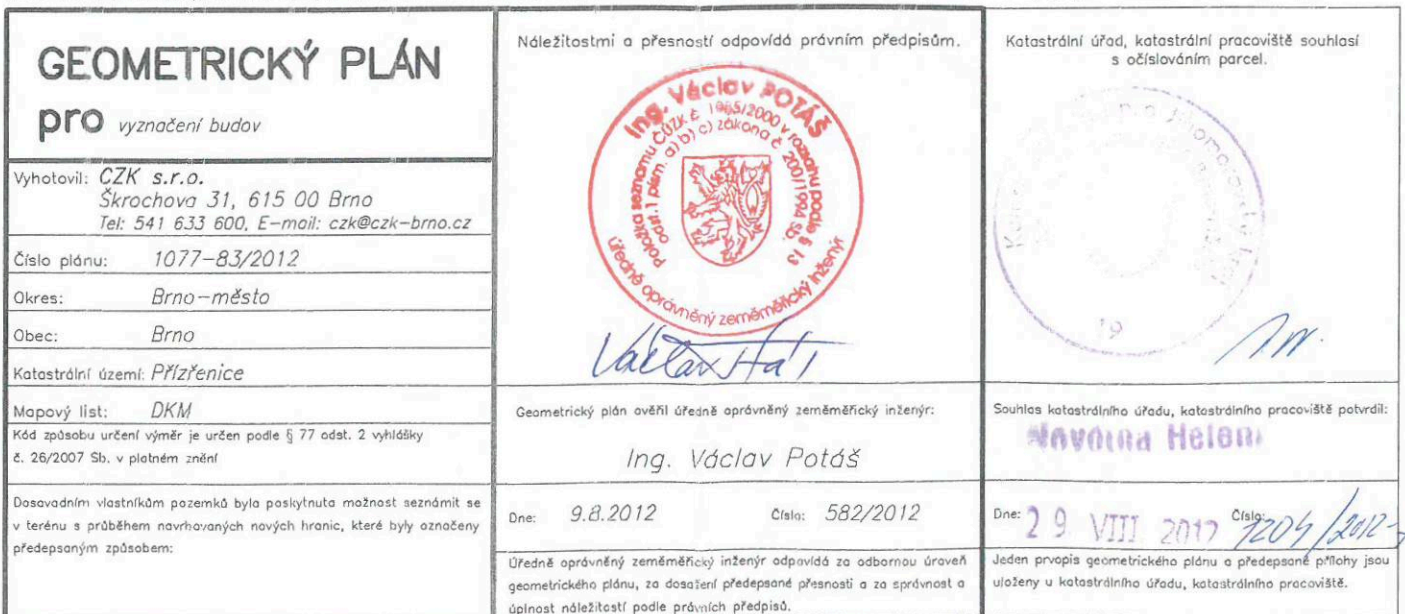 GEOMETRICKÝ PLÁN
pro vyznačení budov
Vyhotovil: CZK s.r.o.
Škrochova 31, 615 00 Brno
Tel: 541 633 600, E-mail: czk@czk-brno.cz
Číslo plánu: 1077-83/2012
Okres: Brno-město
Obec: Brno
Katastrální území: Přízřenice
Mapový list: DKM
Kód způsobu určení výměr je určen podle § 77 odst. 2 vyhlášky
č. 26/2007 Sb. v platném znění
Dosavadním vlastníkům pozemků byla poskytnuta možnost seznámit se
v terénu s průběhem navrhovaných nových hranic, které byly označeny
předepsaným způsobem:
Náležitostmi a přesností odpovídá právním předpisům.
Ing. Václav POTÁŠ
Položka seznamu ČÚZK č. 1985/2000 v rozsahu podle § 13
odst. 1 písm. a) b) c) zákona č. 200/1994 Sb.
úředně oprávněný zeměměřický inženýr
Geometrický plán ověřil úředně oprávněný zeměměřický inženýr:
Ing. Václav Potáš
Dne: 9.8.2012 Číslo: 582/2012
Úředně oprávněný zeměměřický inženýr odpovídá za odbornou úroveň
geometrického plánu, za dosažení předepsané přesnosti a za správnost a
úplnost náležitostí podle právních předpisů.
Katastrální úřad, katastrální pracoviště souhlasí
s očíslováním parcel.
19
Souhlas katastrálního úřadu, katastrálního pracoviště potvrdil:
Novotná Helena
Dne: 29 VIII 2012 Číslo: 1204/2012
Jeden prvopis geometrického plánu a předepsané přílohy jsou
uloženy u katastrálního úřadu, katastrálního pracoviště.